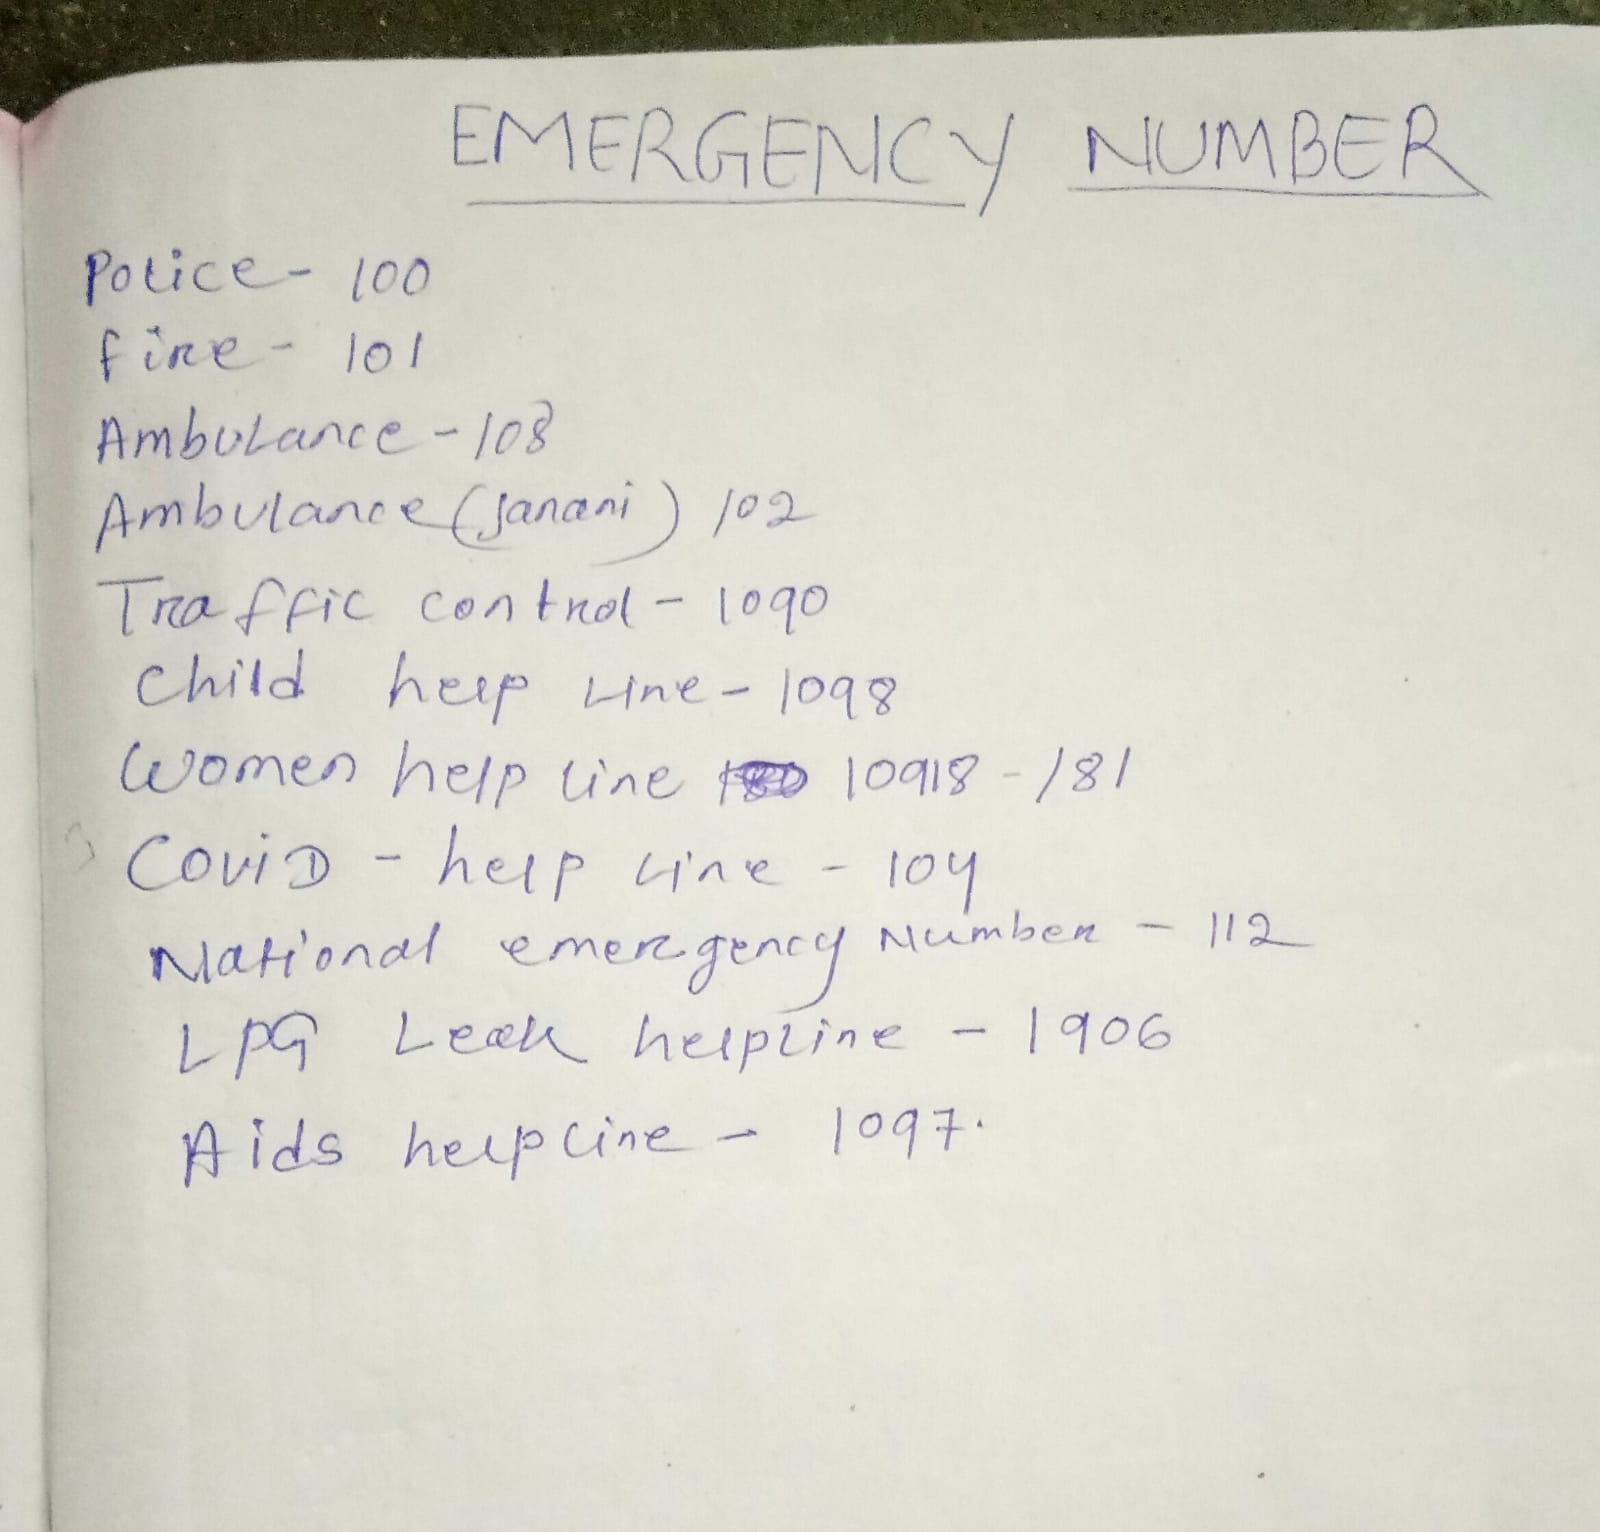 EMERGENCY NUMBER
Police - 100
fire - 101
Ambulance - 108
Ambulance (Janani) 102
Traffic control - 1090
Child help Line - 1098
Women help line 10918 - 181
CoviD - help Line - 104
National emergency Number - 112
LPG Leak helpline - 1906
Aids helpline - 1097.